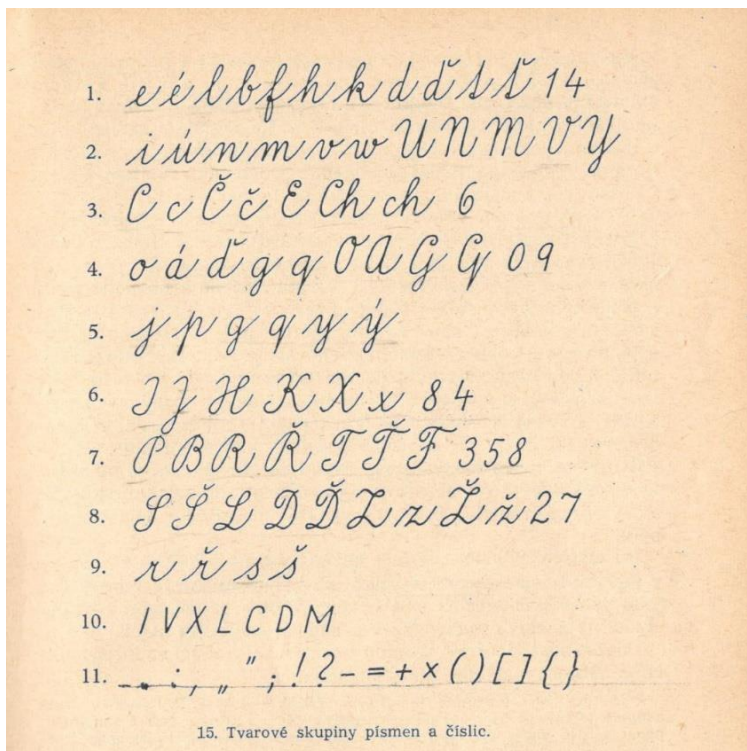 1. e é l b f h k d ď t ť 1 4
2. i ú n m v w U N M V Y
3. C c Č č E Ch ch 6
4. o á ď g q O A G G 0 9
5. j p g q y ý
6. I J H K X x 8 4
7. P B R Ř T Ť F 3 5 8
8. S Š L D Ď Z z Ž ž 2 7
9. r ř s š
10. I V X L C D M
11. . : , „ " ; ! ? - = + × ( ) [ ] { }
15. Tvarové skupiny písmen a číslic.